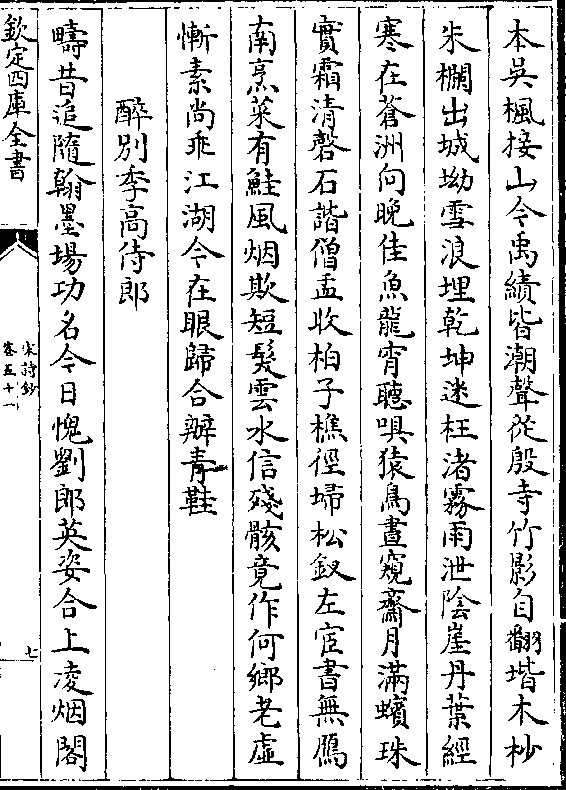 本吳楓接山今禹績皆潮聲從殷寺竹影自翻堦木杪
朱欄出城坳雪浪埋乾坤迷枉渚霧雨泄陰崖丹葉經
寒在蒼洲向晚佳魚龍宵聽唄猿鳥晝窺齋月滿蠙珠
實霜清磬石諧僧盂收柏子樵徑埽松釵左宦書無鴈
南烹菜有鮭風烟欺短髮雲水信殘骸竟作何鄉老虛
慚素尚乖江湖今在眼歸合辦青鞋
醉別季高侍郎
疇昔追隨翰墨場功名今日愧劉郎英姿合上凌烟閣
欽定四庫全書
宋詩鈔
卷五十一
七